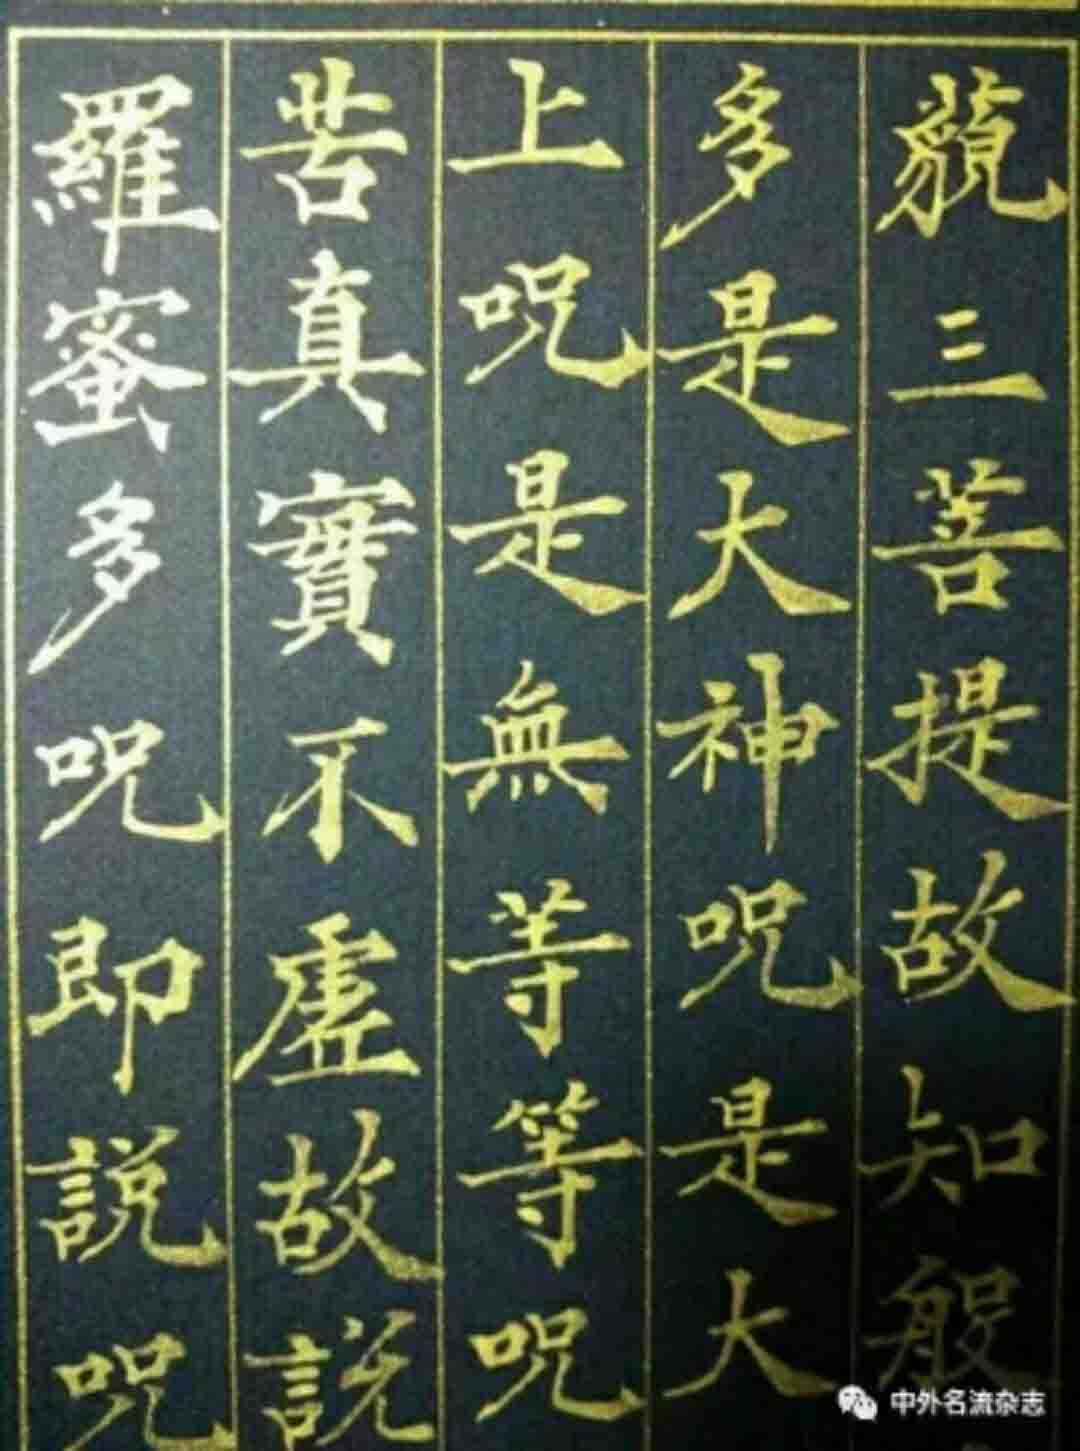 藐三菩提故知般
多是大神咒是大
上咒是無等等咒
苦真實不虛故説
羅蜜多咒即説咒
中外名流杂志